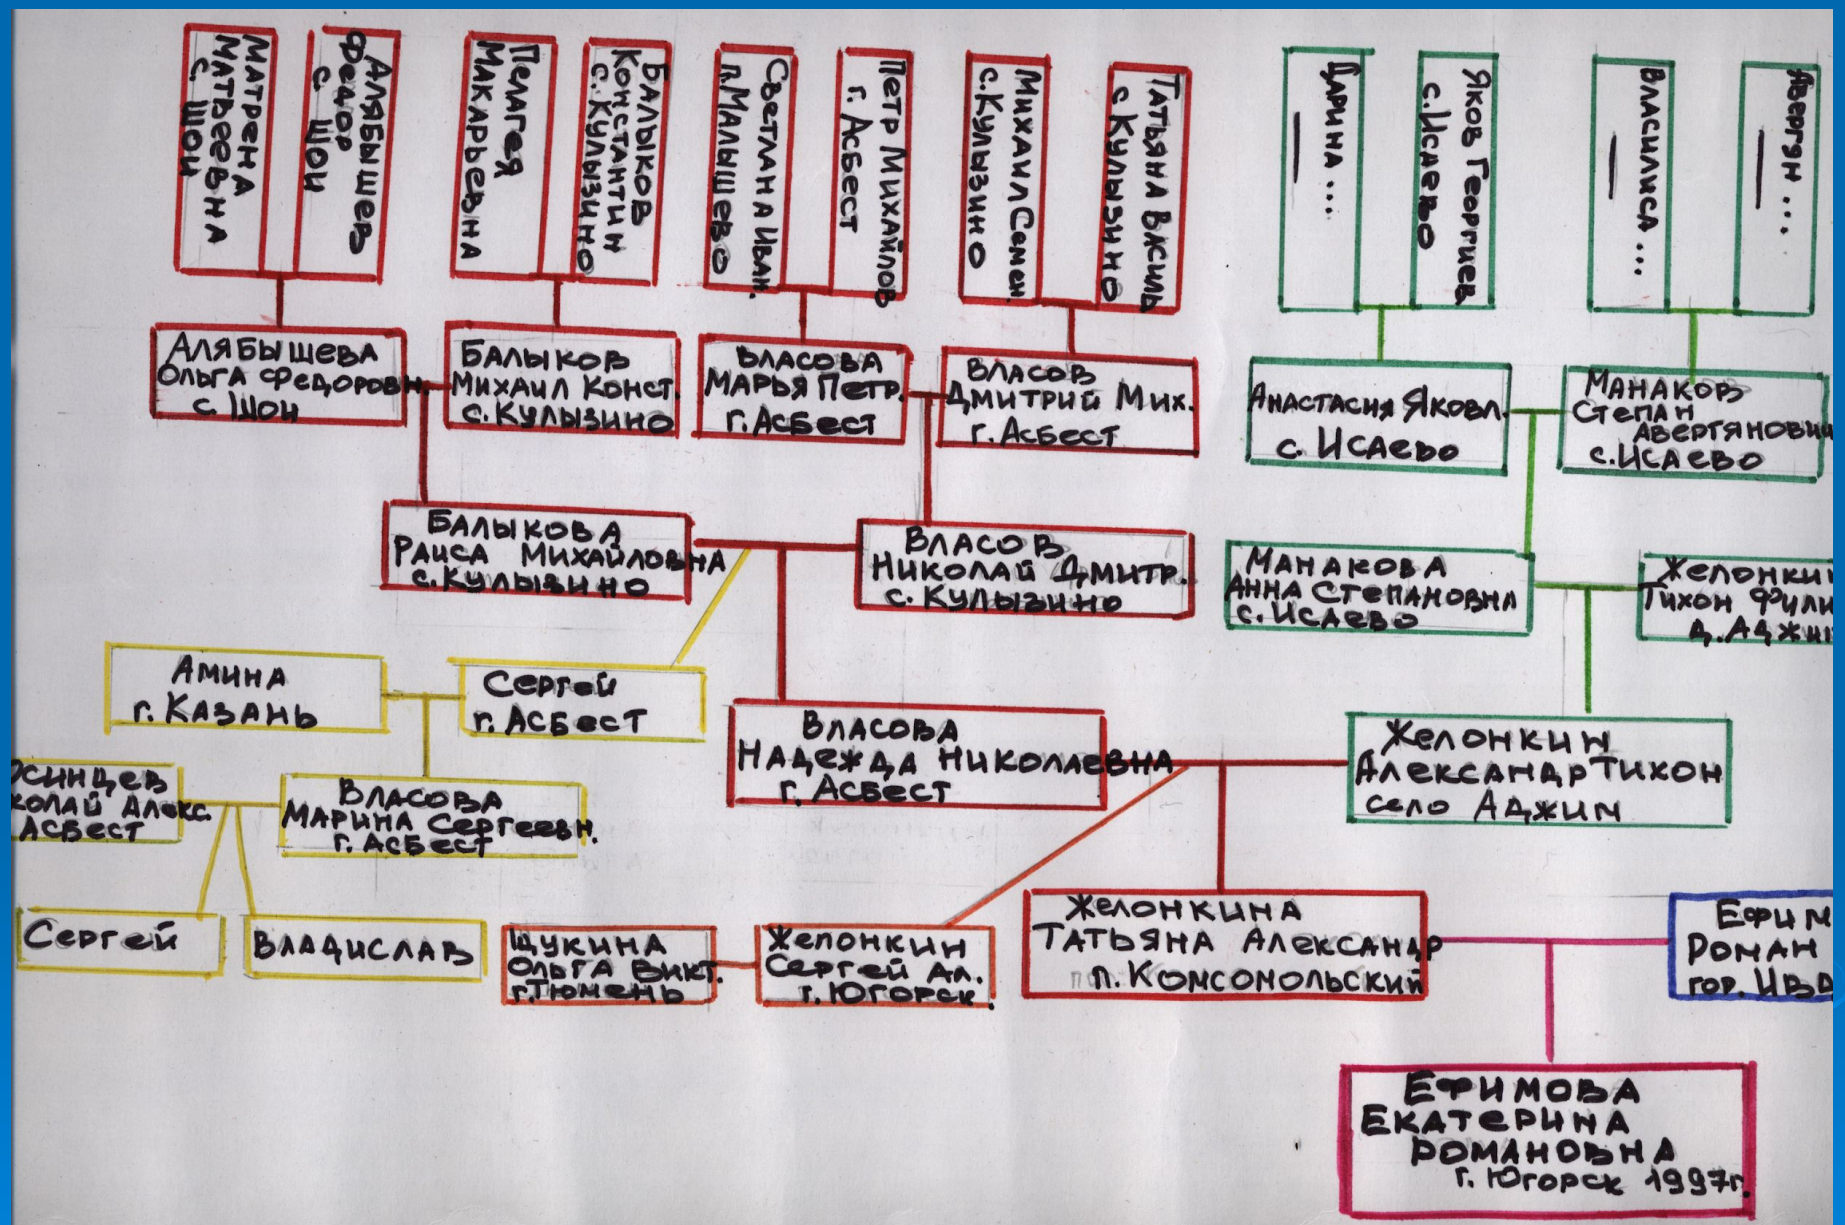 МАТРЕНА
МАТВЕЕВНА
С. ШОИ
АЛЯБЫШЕВ
ФЕДОР
С. ШОИ
ПЕЛАГЕЯ
МАКАРЬЕВНА
БАЛЫКОВ
КОНСТАНТИН
С. КУЛЫЗИНО
СВЕТЛАНА ИВАН.
П. МАЛЫШЕВО
ПЕТР МИХАЙЛОВ
Г. АСБЕСТ
МИХАИЛ СЕМЕН.
С. КУЛЫЗИНО
ТАТЬЯНА ВАСИЛЬ
С. КУЛЫЗИНО
ДАРИНА...
ЯКОВ ГЕОРГИЕВ
С. ИСАЕВО
ВАСИЛИСА...
АВЕРГЯН...
АЛЯБЫШЕВА
ОЛЬГА ФЕДОРОВН.
С. ШОИ
БАЛЫКОВ
МИХАИЛ КОНСТ.
С. КУЛЫЗИНО
ВЛАСОВА
МАРЬЯ ПЕТР.
Г. АСБЕСТ
ВЛАСОВ
ДМИТРИЙ МИХ.
Г. АСБЕСТ
АНАСТАСИЯ ЯКОВЛ.
С. ИСАЕВО
МАНАКОВ
СТЕПАН
АВЕРГЯНОВИЧ
С. ИСАЕВО
БАЛЫКОВА
РАИСА МИХАЙЛОВНА
С. КУЛЫЗИНО
ВЛАСОВ
НИКОЛАЙ ДМИТР.
С. КУЛЫЗИНО
МАНАКОВА
АННА СТЕПАНОВНА
С. ИСАЕВО
ЖЕЛОНКИН
ТИХОН ФИЛИ
Д. АДЖИ
АМИНА
Г. КАЗАНЬ
СЕРГЕЙ
Г. АСБЕСТ
ВЛАСОВА
НАДЕЖДА НИКОЛАЕВНА
Г. АСБЕСТ
ЖЕЛОНКИН
АЛЕКСАНДР ТИХОН
СЕЛО АДЖИМ
ОСИНЦЕВ
КОЛАЙ АЛЕКС.
АСБЕСТ
ВЛАСОВА
МАРИНА СЕРГЕЕВН.
Г. АСБЕСТ
СЕРГЕЙ
ВЛАДИСЛАВ
ЩУКИНА
ОЛЬГА ВИКТ.
Г. ТЮМЕНЬ
ЖЕЛОНКИН
СЕРГЕЙ АЛ.
Г. ЮГОРСК.
ЖЕЛОНКИНА
ТАТЬЯНА АЛЕКСАНДР
П. КОМСОМОЛЬСКИЙ
ЕФИМ
РОМАН
ГОР. ИВД
ЕФИМОВА
ЕКАТЕРИНА
РОМАНОВНА
Г. ЮГОРСК 1997г.